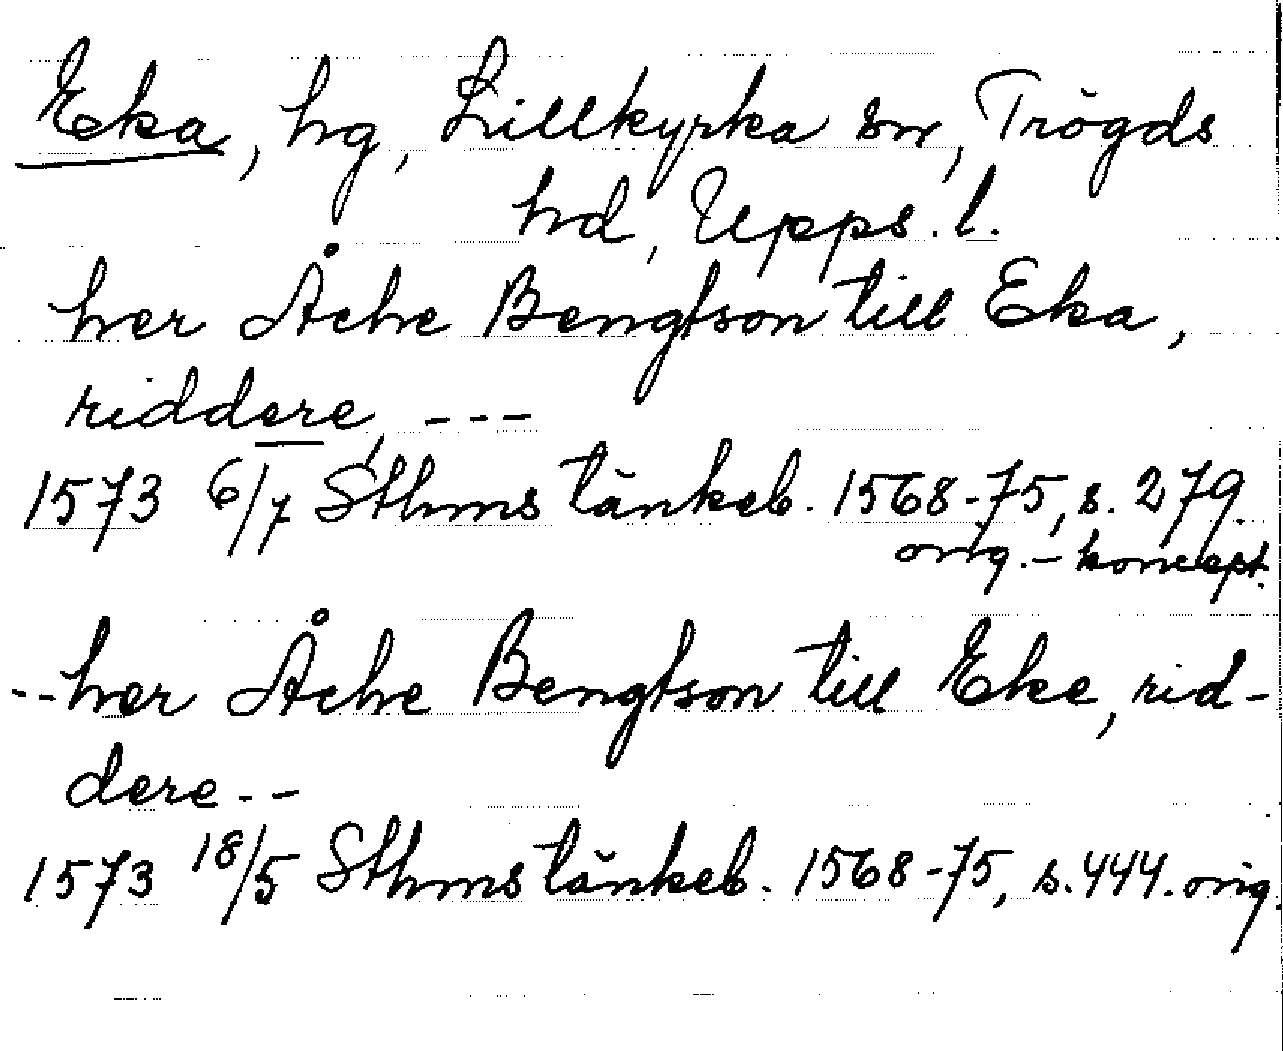 Eka, hg, Lillkyrka sn, Trögds
hd, Upps. l.
her Åche Bengtson till Eka,
riddere, ---
1573 6/7 Sthms tänkeb. 1568-75, s. 279.
orig. - koncept.
--her Åche Bengtson till Eke, rid-
dere--
1573 18/5 Sthms tänkeb. 1568-75, s. 444. orig.